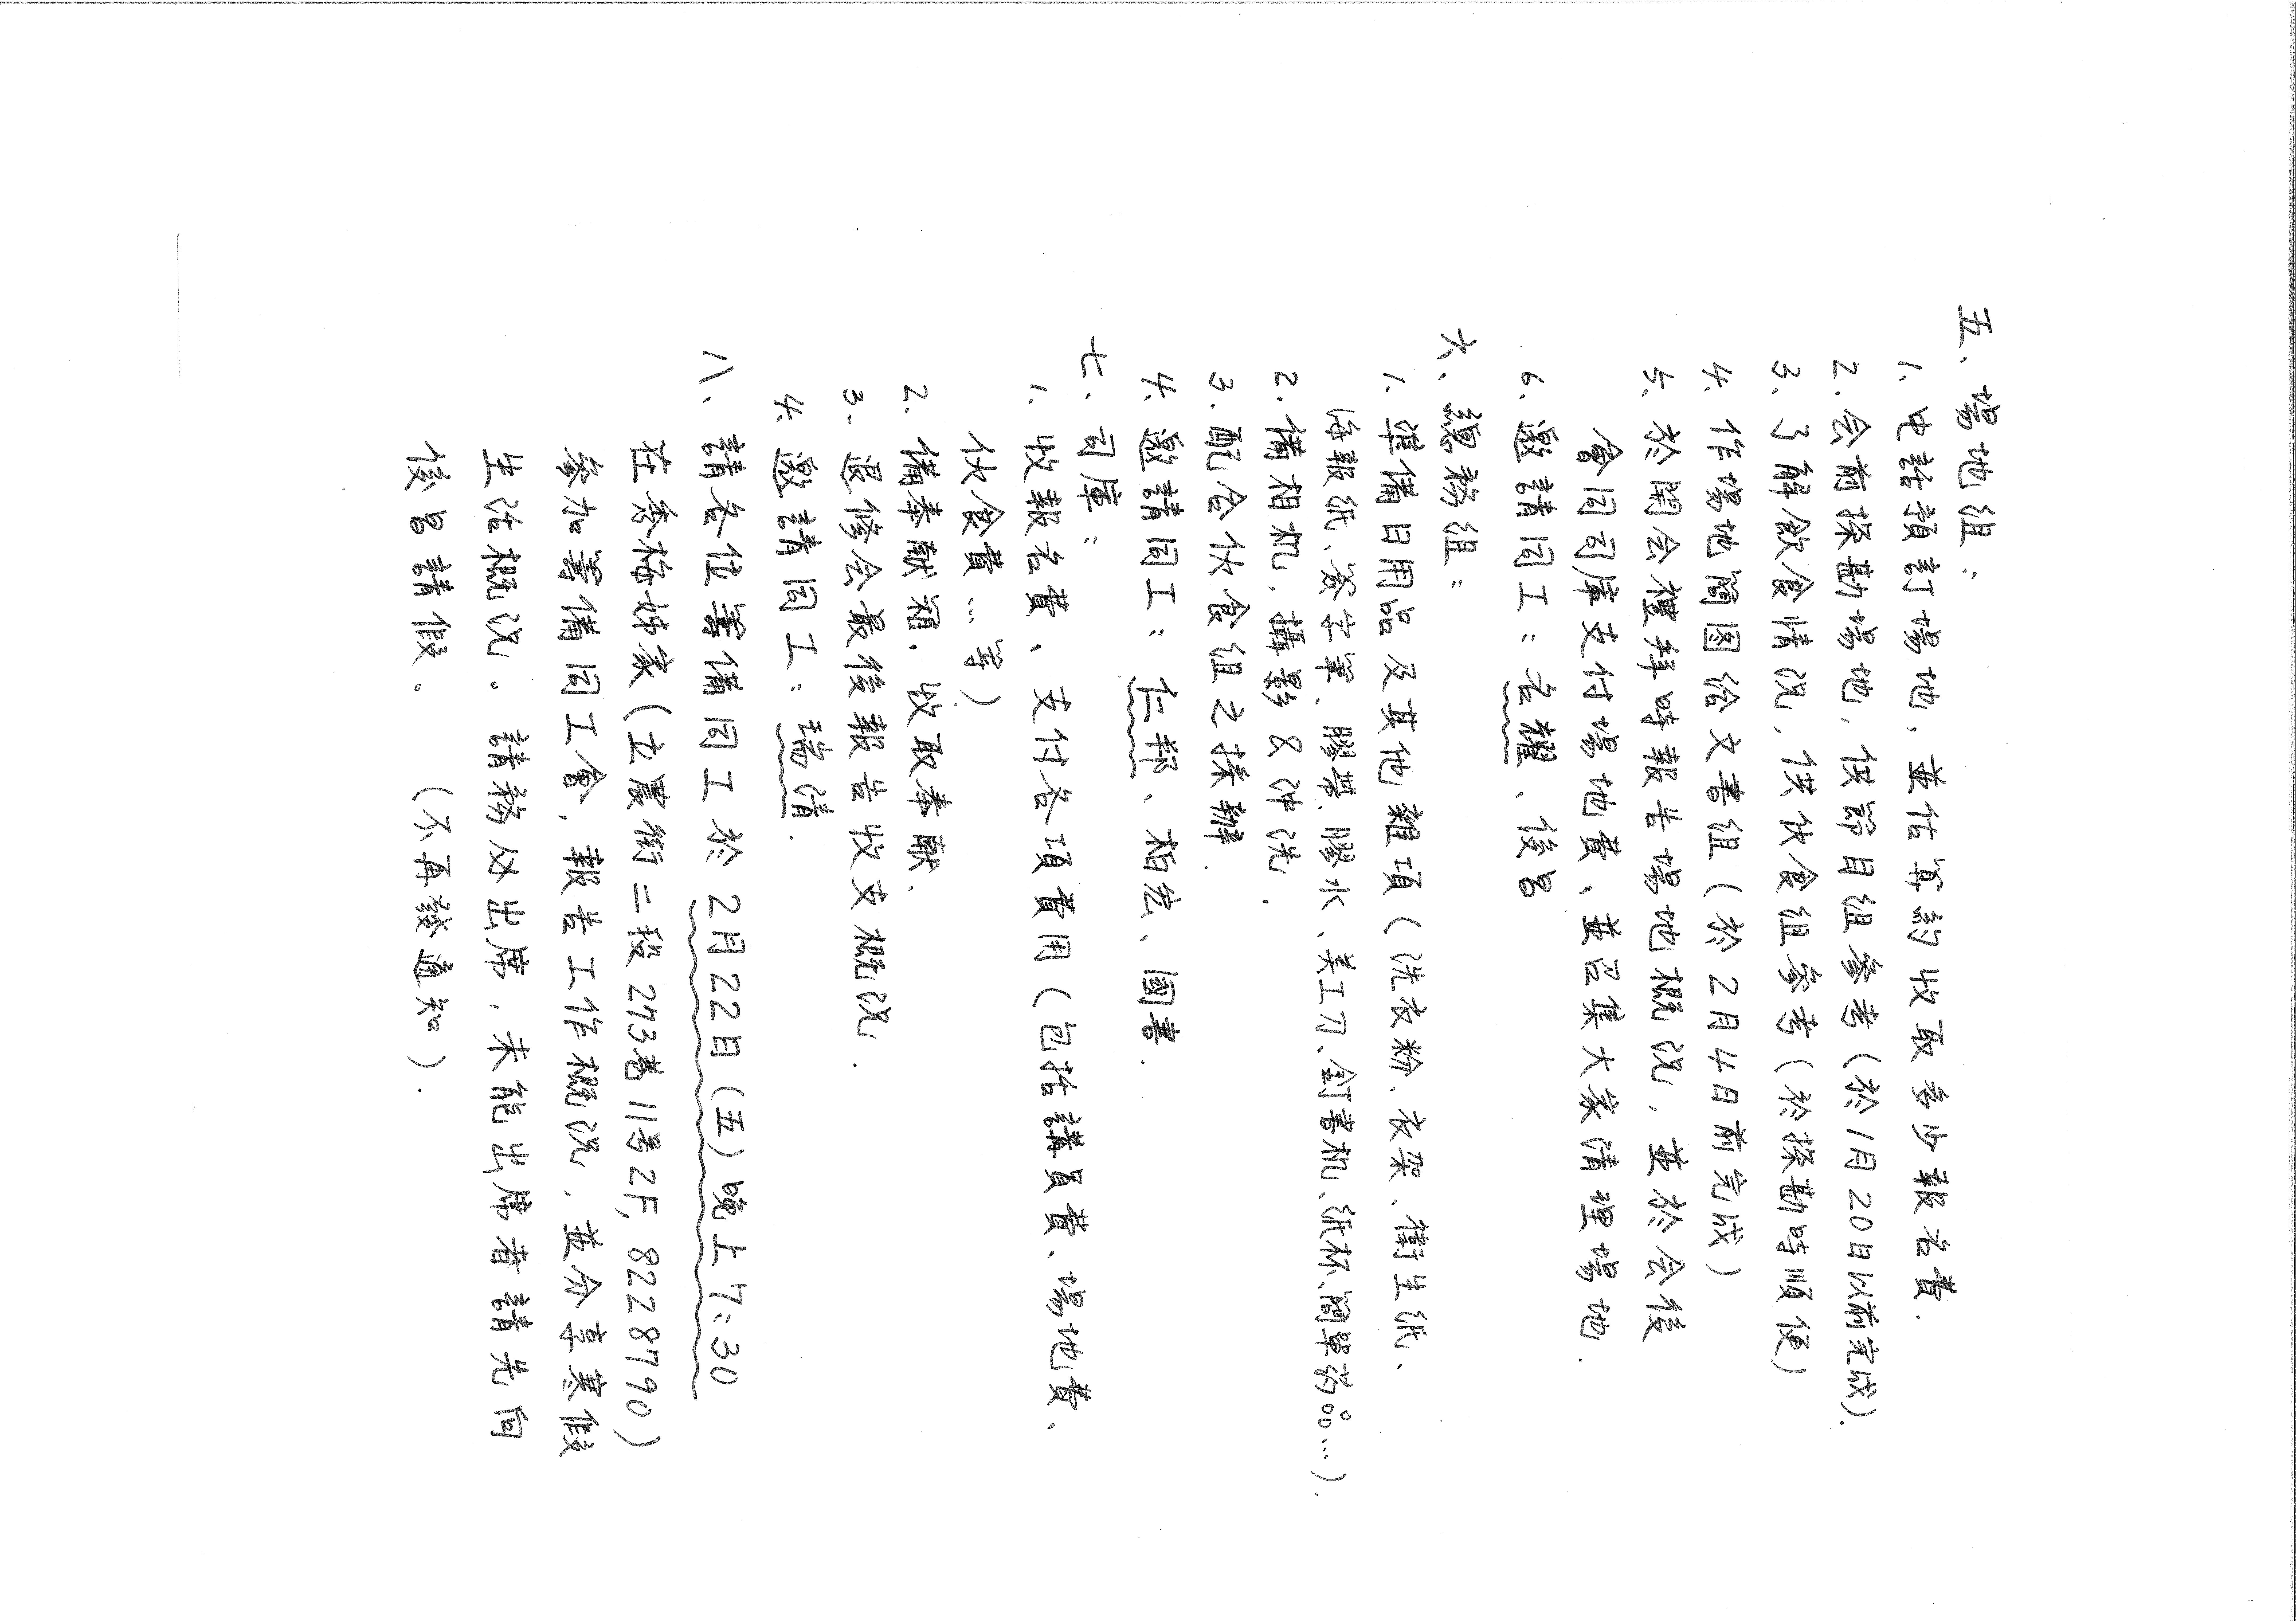 五、場地組:
1、电話預訂場地,並估算約收取多少報名費.
2.会前探勘場地,供節目組參考(於1月20日以前完成).
3、了解飲食情況,供伙食組參考(於探勘時順便)
4、作場地簡図給文書組(於2月4日前完成)
5、於開会禮拜時報告場地概況,並於会後
會同司庫支付場地費、並召集大家清理場地.
6、邀請同工:名耀、俊昌
六、總務組:
1、準備日用品及其他雜項(洗衣粉、衣架、衛生紙、
海報紙、簽字筆、膠帶、膠水、美工刀、釘書机、纸杯、簡單药品...).
2.備相机.攝影&沖洗.
3.配合伙食組之採辦.
4、邀請同工:仁邦、柏宏、國書.
七、司庫:
1、收報名費、支付各項費用(包括講員費、場地費、
伙食費...等)
2.備奉献箱.收取奉献.
3、退修会最後報告收支概況.
4、邀請同工:瑞清.
八、請各位籌備同工於2月22日(五)晚上7:30
在秀梅姊家(立農街二段273巷11号2F, 8228790)
參加籌備同工會,報告工作概況,並分享寒假
生活概況。請務必出席,未能出席者請先向
俊昌請假、(不再發通知).